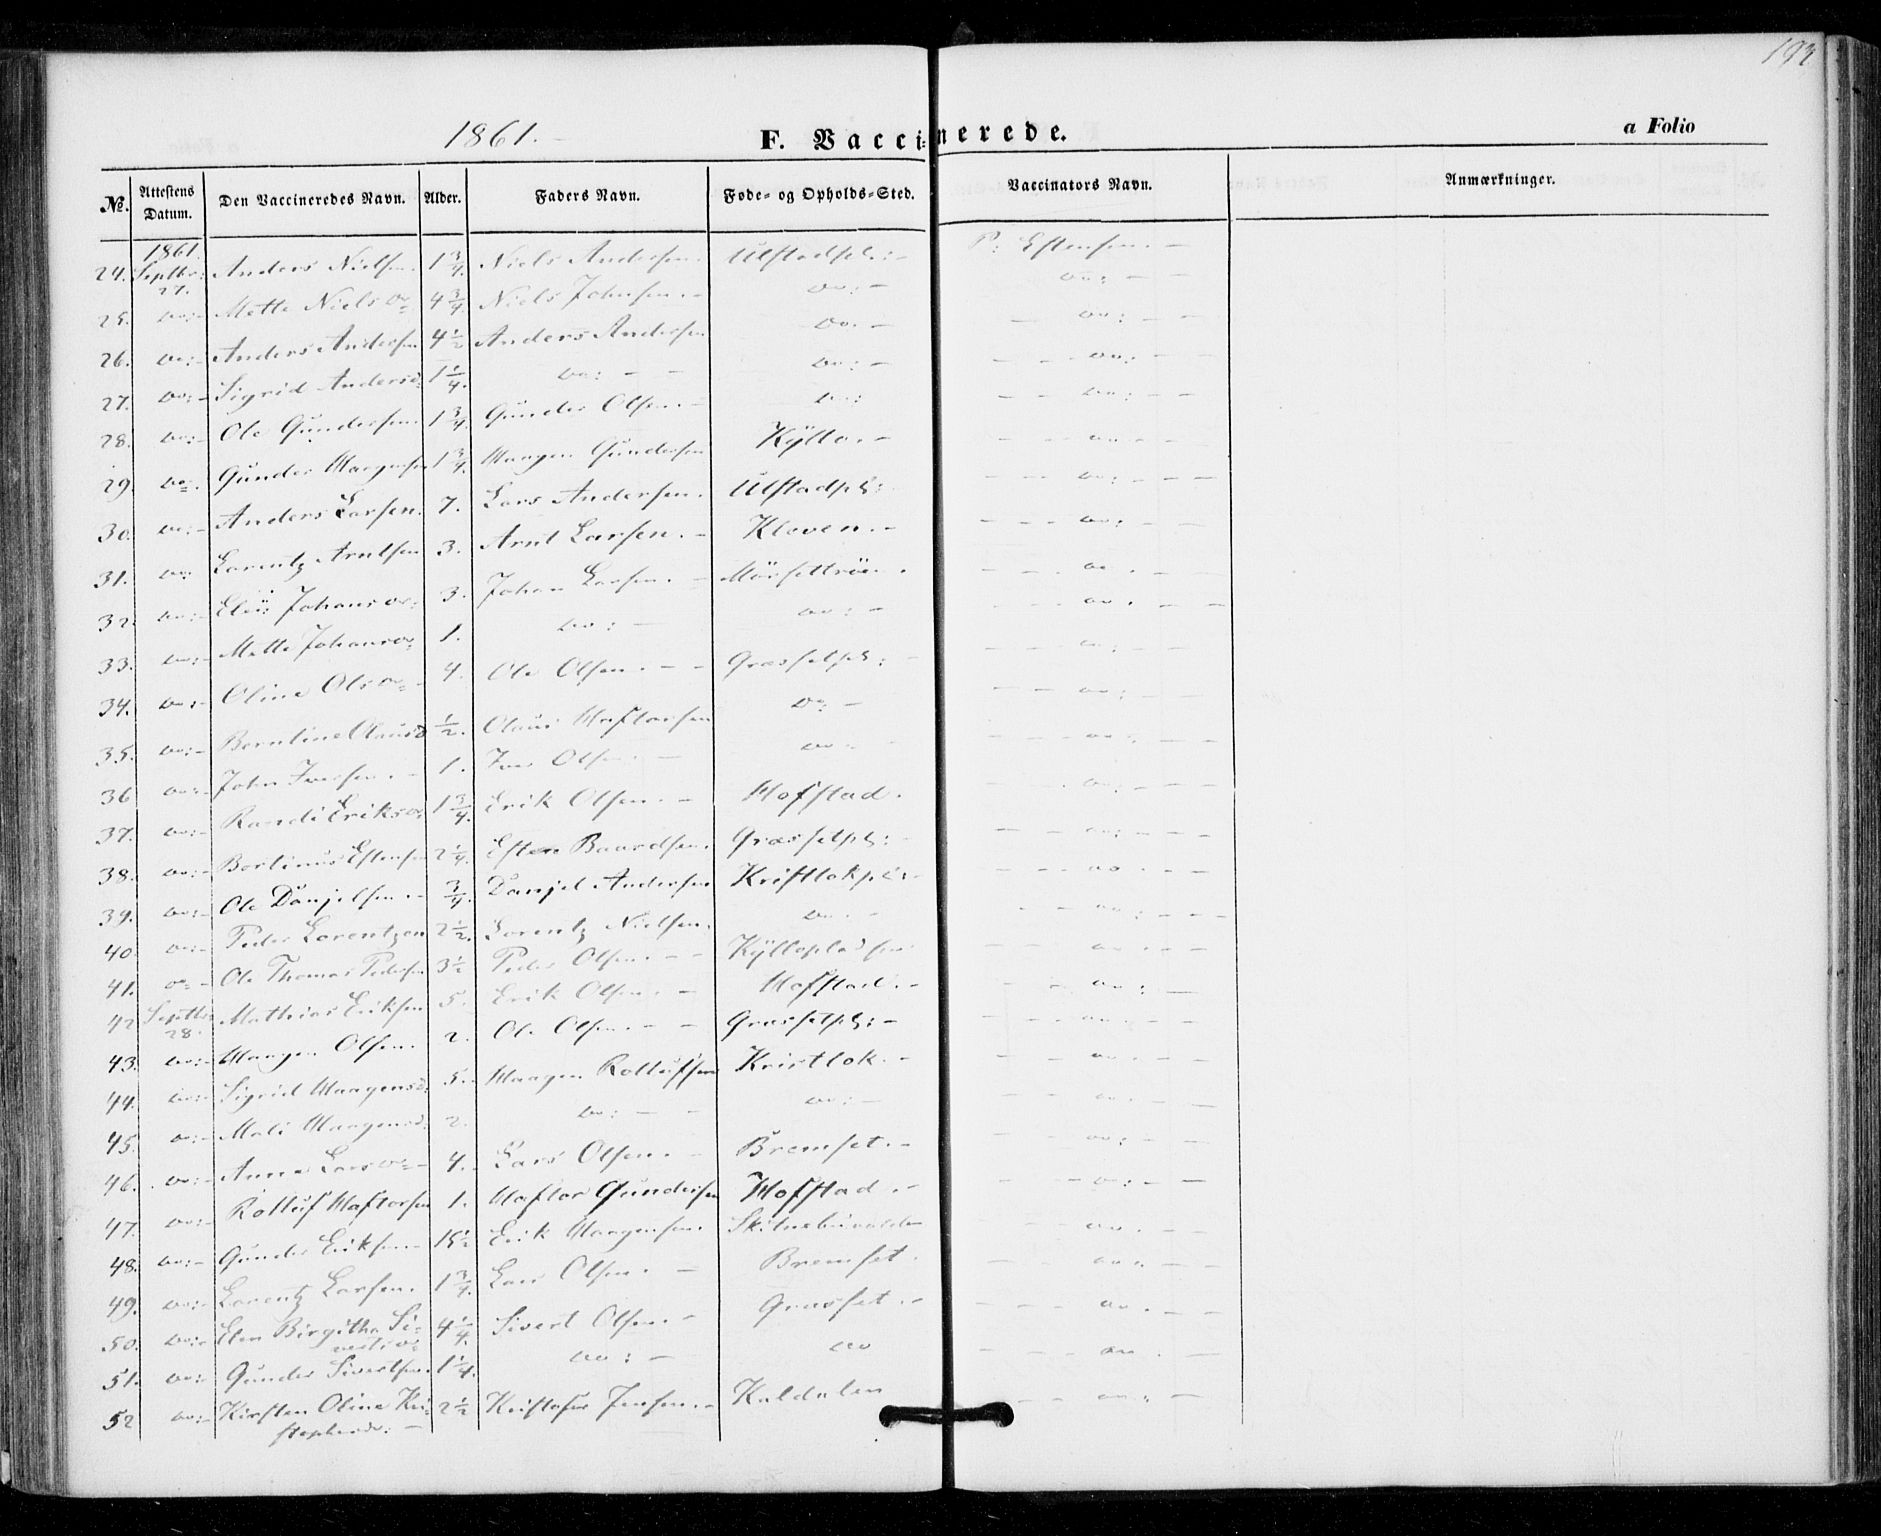 193
1861. –
F. Vaccinerede.
a Folio
№. Attestens Datum. Den Vaccineredes Navn. Alder. Faders Navn. Føde- og Opholds-Sted. Vaccinators Navn. Anmærkninger.
1861.
24. Septbr: 27. Anders Nielsen. 1 3/4. Niels Andersen. Ulstadpl: – P: Estensen. –
25. do: – Mette Nielsd: 4 3/4. Niels Johnsen. – do: – do: – –
26. do: – Anders Andersen 4 1/2 Anders Andersen do. – – do: – –
27. do: – Sigrid Andersd: 1 1/4. do: – – do: – – – do: – –
28. do: – Ole Gundersen. 1 3/4. Gunder Olsen. – do: – – do: – –
29. do. Gunder Haagensen 1 3/4. Haagen Gundersen Kyllo. – – – do. – –
30. do: – Anders Larsen. 7. Lars Andersen. Ulstadpl: – – do: – – –
31. do: Lorentz Arntsen 3. Arnt Larsen. – Kloven. – – – do: – –
32. do: – Elen Johansd: 3. Johan Larsen. – Mörsettröe. – – do. – –
33. do: – Mette Johansd: 1. do: – do: – – – do. – –
34. do: – Oline Olsd: – 4. Ole Olsen. – – Græsselpl: – – – do: – –
35. do: – Berntine Olausd 1/2. Olaus Haftorsen do: – – – do: – –
36 do: – John Iversen. – 1. Iver Olsen. – do: – – do: – –
37. do: – Randi Eriksd: 1 3/4. Erik Olsen. – Hofstad. – do: – –
38. do: – Bertinus Estensen 2 1/4. Esten Baardsen. Græsselpl: – – – do: – –
39. do: – Ole Danjelsen. – 3/4. Danjel Andersen Kristlokpl: – – – do – –
40. do: – Peder Lorentzen 2 1/2. Lorentz Nielsen. do. – – – do: – – –
41. do – Ole Thomas Pedersen 3 1/2 Peder Olsen. – – Kyllopladsen – – do. – –
42 Septbr 28. Mathias Eriksen 5. Erik Olsen. – Hofstad. – – – do: –
43. do: – Haagen Olsen. 2. Ole Olsen. – – Græsselpl: – – – do. – –
44. do: – Sigrid Haagensd: 5. – Haagen Rolluſsen Kristlok. – – – do. – –
45. do: – Mali Haagensd: 2. do: – – do: – – – do: – –
46. do: – Anne Larsd: – 4. – Lars Olsen. – Bremset. – – – do: – –
47. do: – Rolluf Haftorsen 1. Haftor Gundersen Hofstad. – – – do: – –
48. do: – Gunder Eriksen. – 15 1/2 Erik Haagensen. – – do. – –
49. do: – Lorentz Larsen. 1 3/4. Lars Olsen. – Bremset. – – do: – –
50. do: – Elen Birgitha Si-
vertsd: 4 1/4. Sivert Olsen. – Græsset. – – – do. – –
51. do: Gunder Sivertsen. 1 1/4. do: – do – – – do. –
52 do: – Kirsten Oline Kri-
stophersd: – 2 1/2 Kristofer Jensen. – Kaldalen – – do: –